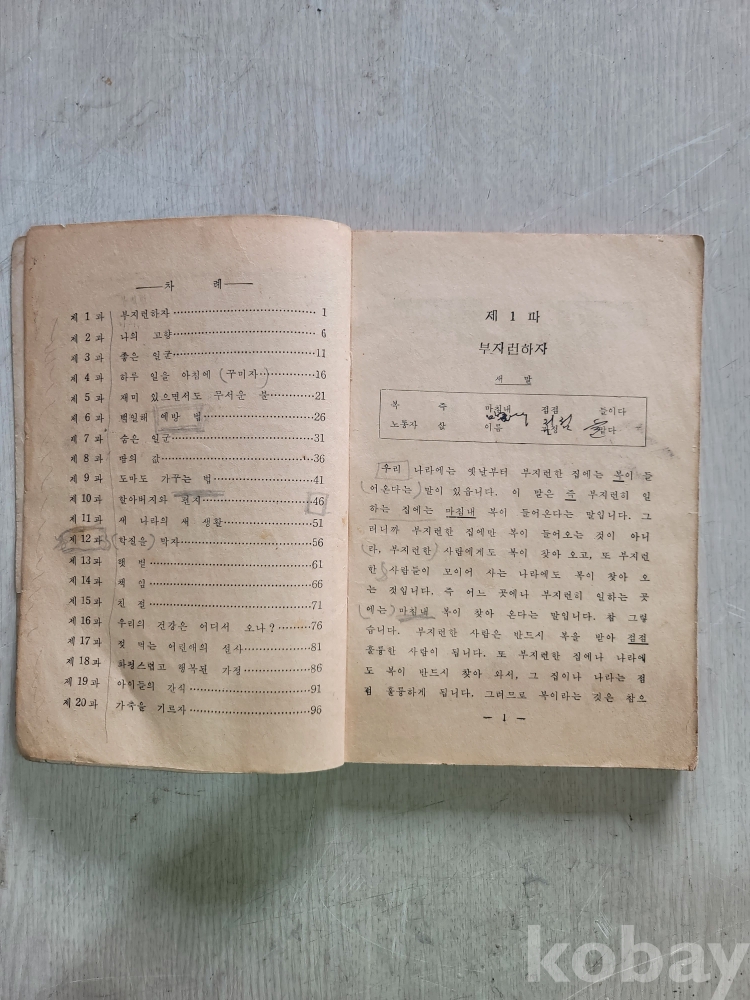 차 례
제 1 과 부지런하자 1
제 2 과 나의 고향 6
제 3 과 좋은 일군 11
제 4 과 하루 일을 아침에 (꾸미자) 16
제 5 과 재미 있으면서도 무서운 불 21
제 6 과 백일해 예방 법 26
제 7 과 숨은 일군 31
제 8 과 땅의 값 36
제 9 과 도마도 가꾸는 법 41
제 10 과 할아버지와 편지 46
제 11 과 새 나라의 새 생활 51
제 12 과 (학질을) 막자 56
제 13 과 햇 볕 61
제 14 과 책 임 66
제 15 과 친 절 71
제 16 과 우리의 건강은 어디서 오나? 76
제 17 과 젖 먹는 어린애의 설사 81
제 18 과 화평스럽고 행복된 가정 86
제 19 과 아이들의 간식 91
제 20 과 가축을 기르자 96
제 1 과
부지런하자
새 말
복 즉 마침내 점점 들이다
노동자 삶 이룸
우리 나라에는 옛날부터 부지런한 집에는 복이 들
(어온다는) 말이 있읍니다. 이 말은 즉 부지런히 일
하는 집에는 마침내 복이 들어온다는 말입니다. 그
러니까 부지런한 집에만 복이 들어오는 것이 아니
라, 부지런한 사람에게도 복이 찾아 오고, 또 부지런
한 사람들이 모이어 사는 나라에도 복이 찾아 오
는 것입니다. 즉 어느 곳에나 부지런히 일하는 곳
(에는) 마침내 복이 찾아 온다는 말입니다. 참 그렇
습니다. 부지런한 사람은 반드시 복을 받아 점점
훌륭한 사람이 됩니다. 또 부지런한 집에나 나라에
도 복이 반드시 찾아 와서, 그 집이나 나라는 점
점 훌륭하게 됩니다. 그러므로 복이라는 것은 참으
— 1 —
kobay